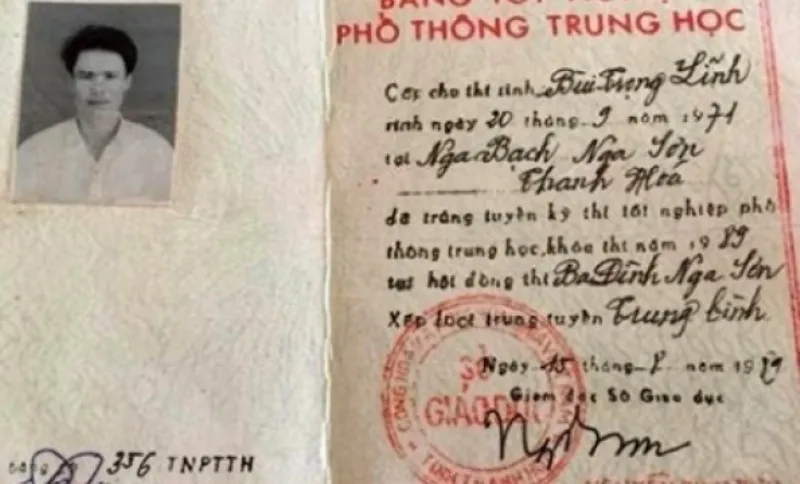 PHỔ THÔNG TRUNG HỌC
Cấp cho thí sinh Bùi Trọng Lĩnh
sinh ngày 20 tháng 9 năm 1971
tại Nga Bạch Nga Sơn
Thanh Hoá
đã trúng tuyển kỳ thi tốt nghiệp phổ
thông trung học, khóa thi năm 1989
tại hội đồng thi Ba Đình Nga Sơn
Xếp loại trúng tuyển Trung bình
Ngày 15 tháng 8 năm 1989
Giám đốc Sở Giáo dục
SỞ
GIÁO DỤC
356 TNPTTH